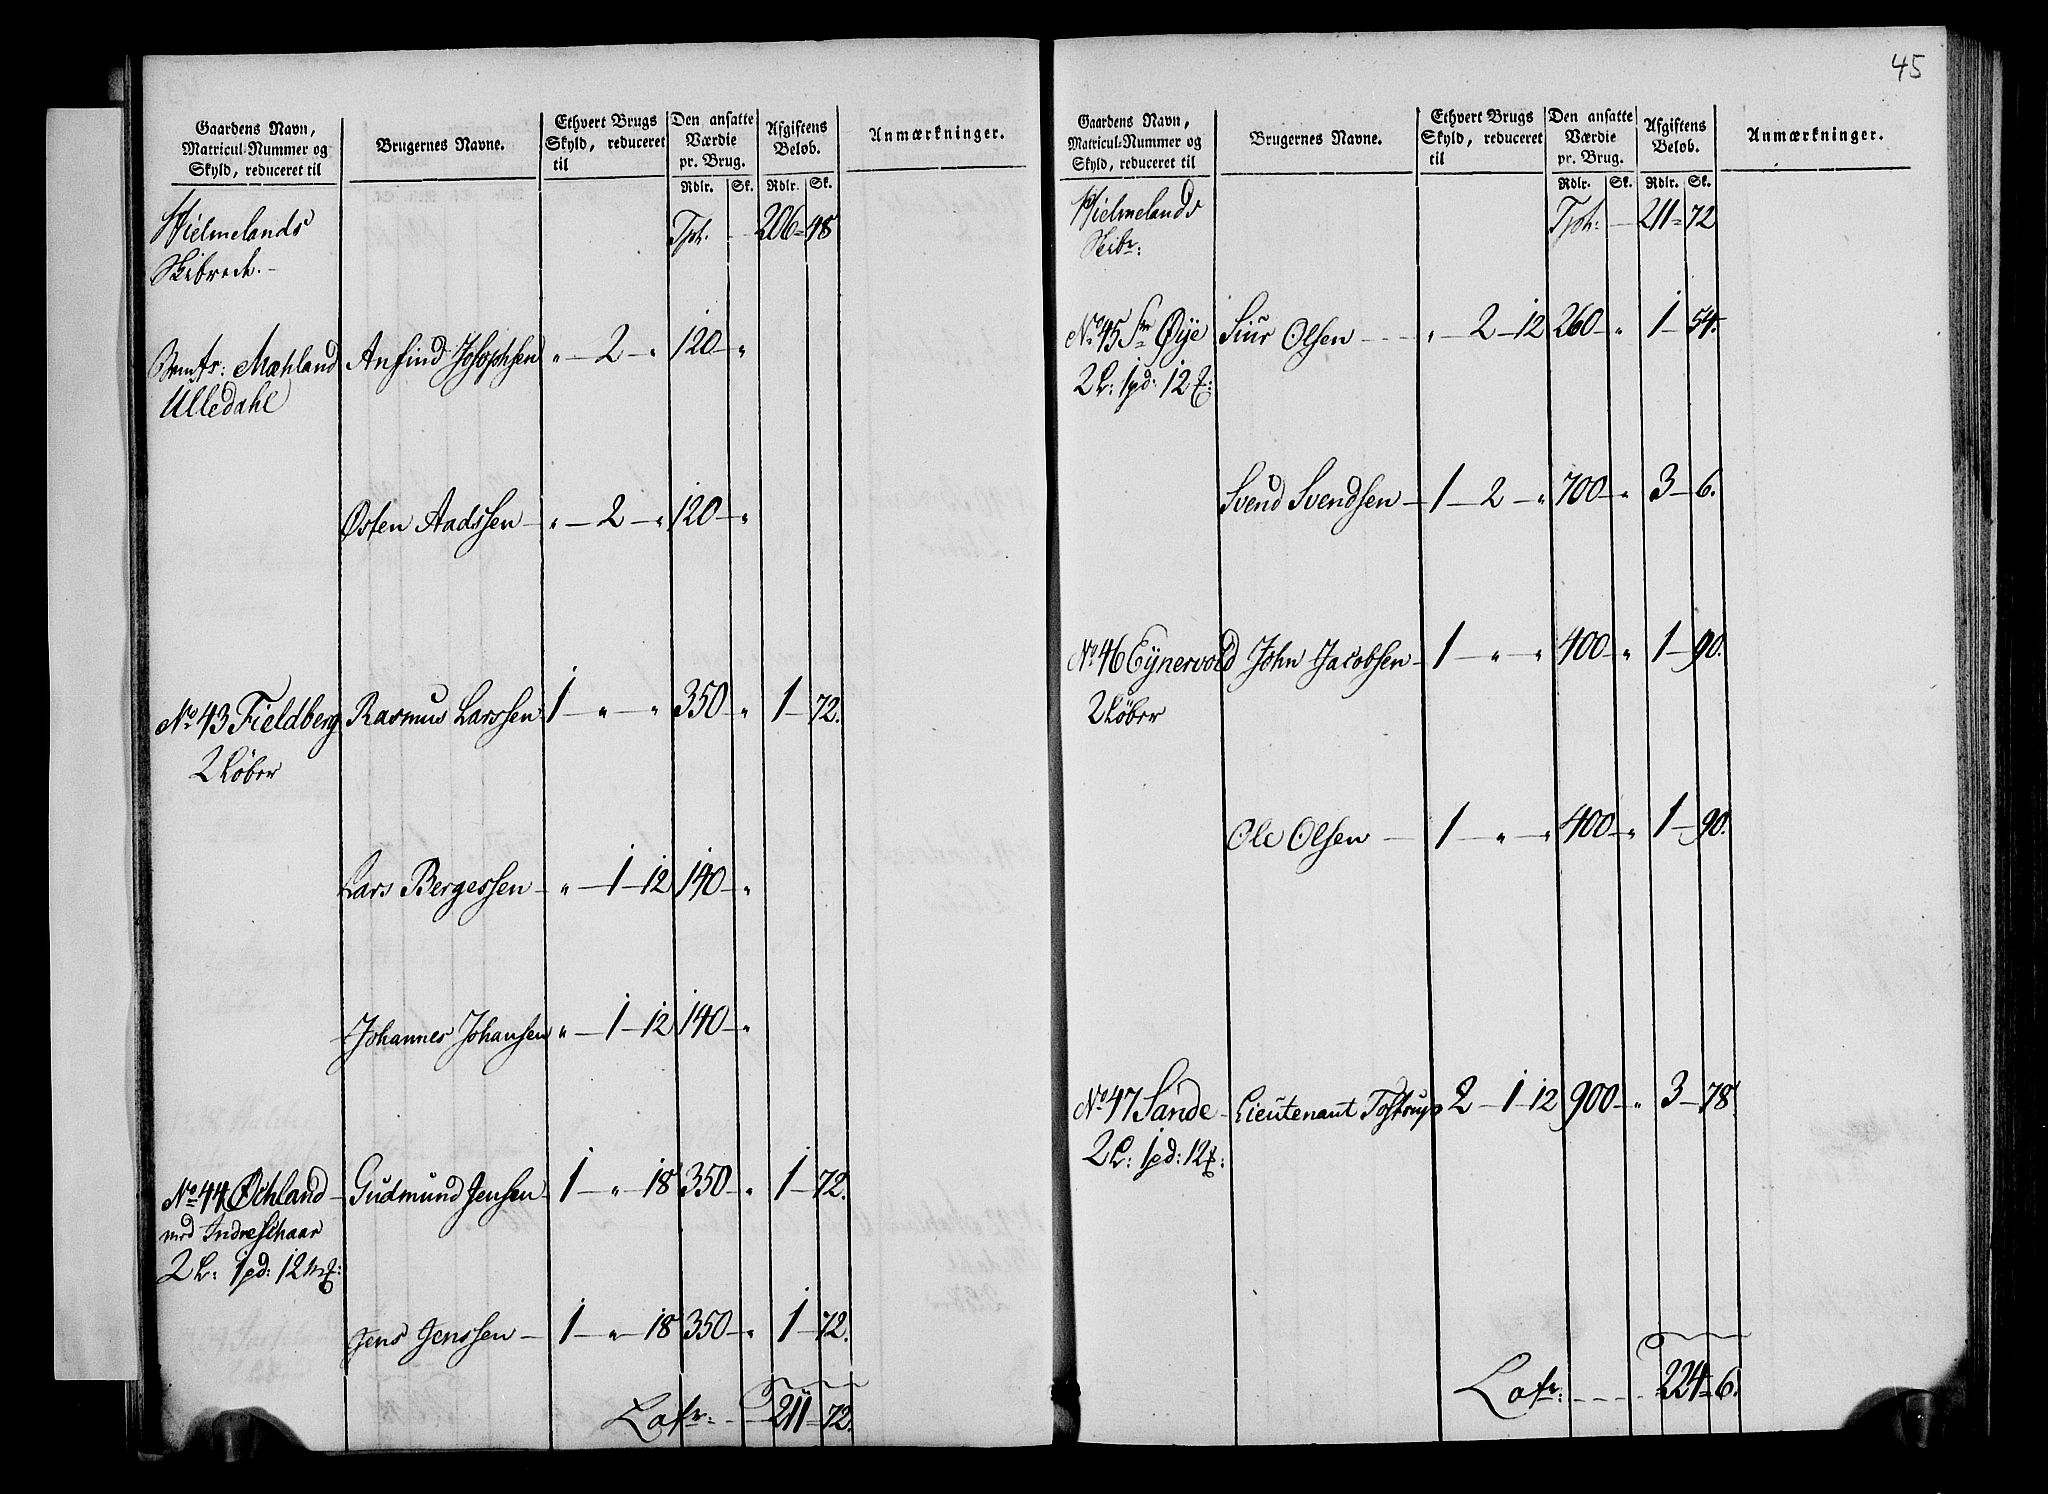 Gaardens Navn, Matricul-Nummer og Skyld, reduceret til | Brugernes Navne. | Ethvert Brugs Skyld, reduceret til | Den ansatte Værdie pr. Brug. Rdlr. Sk. | Afgiftens Beløb. Rdlr. Sk. | Anmærkninger.
Hielmelands Tpt. — 206 = 48
Skibrede. -
Mæhland Anfind Josephsen " — 2 — " 120 — "
Ulledahl
Østen Aadssen — " — 2 — " 120 — "
No. 43 Fieldberg Rasmus Larssen 1 — " — " 350 — " 1 — 72.
2 Løber
Lars Bergessen — " — 1 — 12 140 — "
Johannes Johansen " — 1 — 12 140 — "
No. 44 Øchland — Gudmund Jensen — 1 — " — 18 350 — " 1 — 72.
med Indreschaar
2 L: 1 pd: 12 mk:
Jens Jenssen — 1 — " — 18 350 — " 1 — 72.
Latr: — 211 — 72.
45
Gaardens Navn, Matricul-Nummer og Skyld, reduceret til | Brugernes Navne. | Ethvert Brugs Skyld, reduceret til | Den ansatte Værdie pr. Brug. Rdlr. Sk. | Afgiftens Beløb. Rdlr. Sk. | Anmærkninger.
Hielmelands Tpt: — 211 = 72
Skibr:
No. 45 Øÿe Siur Olsen - - - " 2 — 12 260 — " 1 — 54.
2 L: 1 pd: 12
Svend Svendsen — 1 — 2 — " 700 — " 3 — 6.
No. 46 Eÿnervold John Jacobsen — 1 — " — " 400 — " 1 — 90.
2 Løber
Ole Olsen — 1 — " — " 400 — " 1 — 90.
No. 47 Sande — Lieutenant Tostrup 2 — 1 — 12 900 — " 3 — 78
2 L: 1 pd: 12
Latr: - - - 224 = 6.